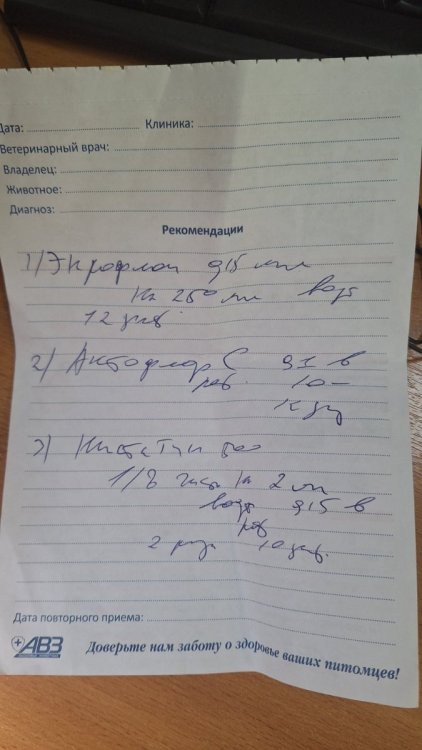 Дата:
Клиника:
Ветеринарный врач:
Владелец:
Животное:
Диагноз:
Рекомендации
1) Экрофлон 0,15 мл
на 250 мл воды
12 дней
2) Актофлор С 0,1 в
10-
3) Нистатин
1/8 на 2 мл
воды 0,15 в
2 раза 10 дней.
Дата повторного приема:
АВЗ
Доверьте нам заботу о здоровье ваших питомцев!